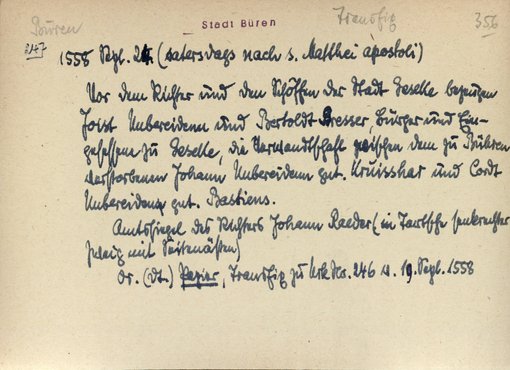 Büren Stadt Büren Transfix 356
247
1558 Sept. 24. (satersdags nach s. Matthei apostoli)
Vor dem Richter und den Schöffen der Stadt Geseke bezeugen
Joist Unbereidenn und Bertoldt Bresser, Bürger und Ein-
gesessene zu Geseke, die Verwandtschaft zwischen dem zu Bühren
verstorbenen Johann Unbereidenn gnt. Kruisshar und Cordt
Unbereidenn gnt. Bastiens.
Amtssiegel des Richters Johann Raeder (in Tartsche senkrechter
Zweig mit Seitenästen)
Or. (dt.) Papier, Transfix zu Urk. Nr. 246 v. 19. Sept. 1558